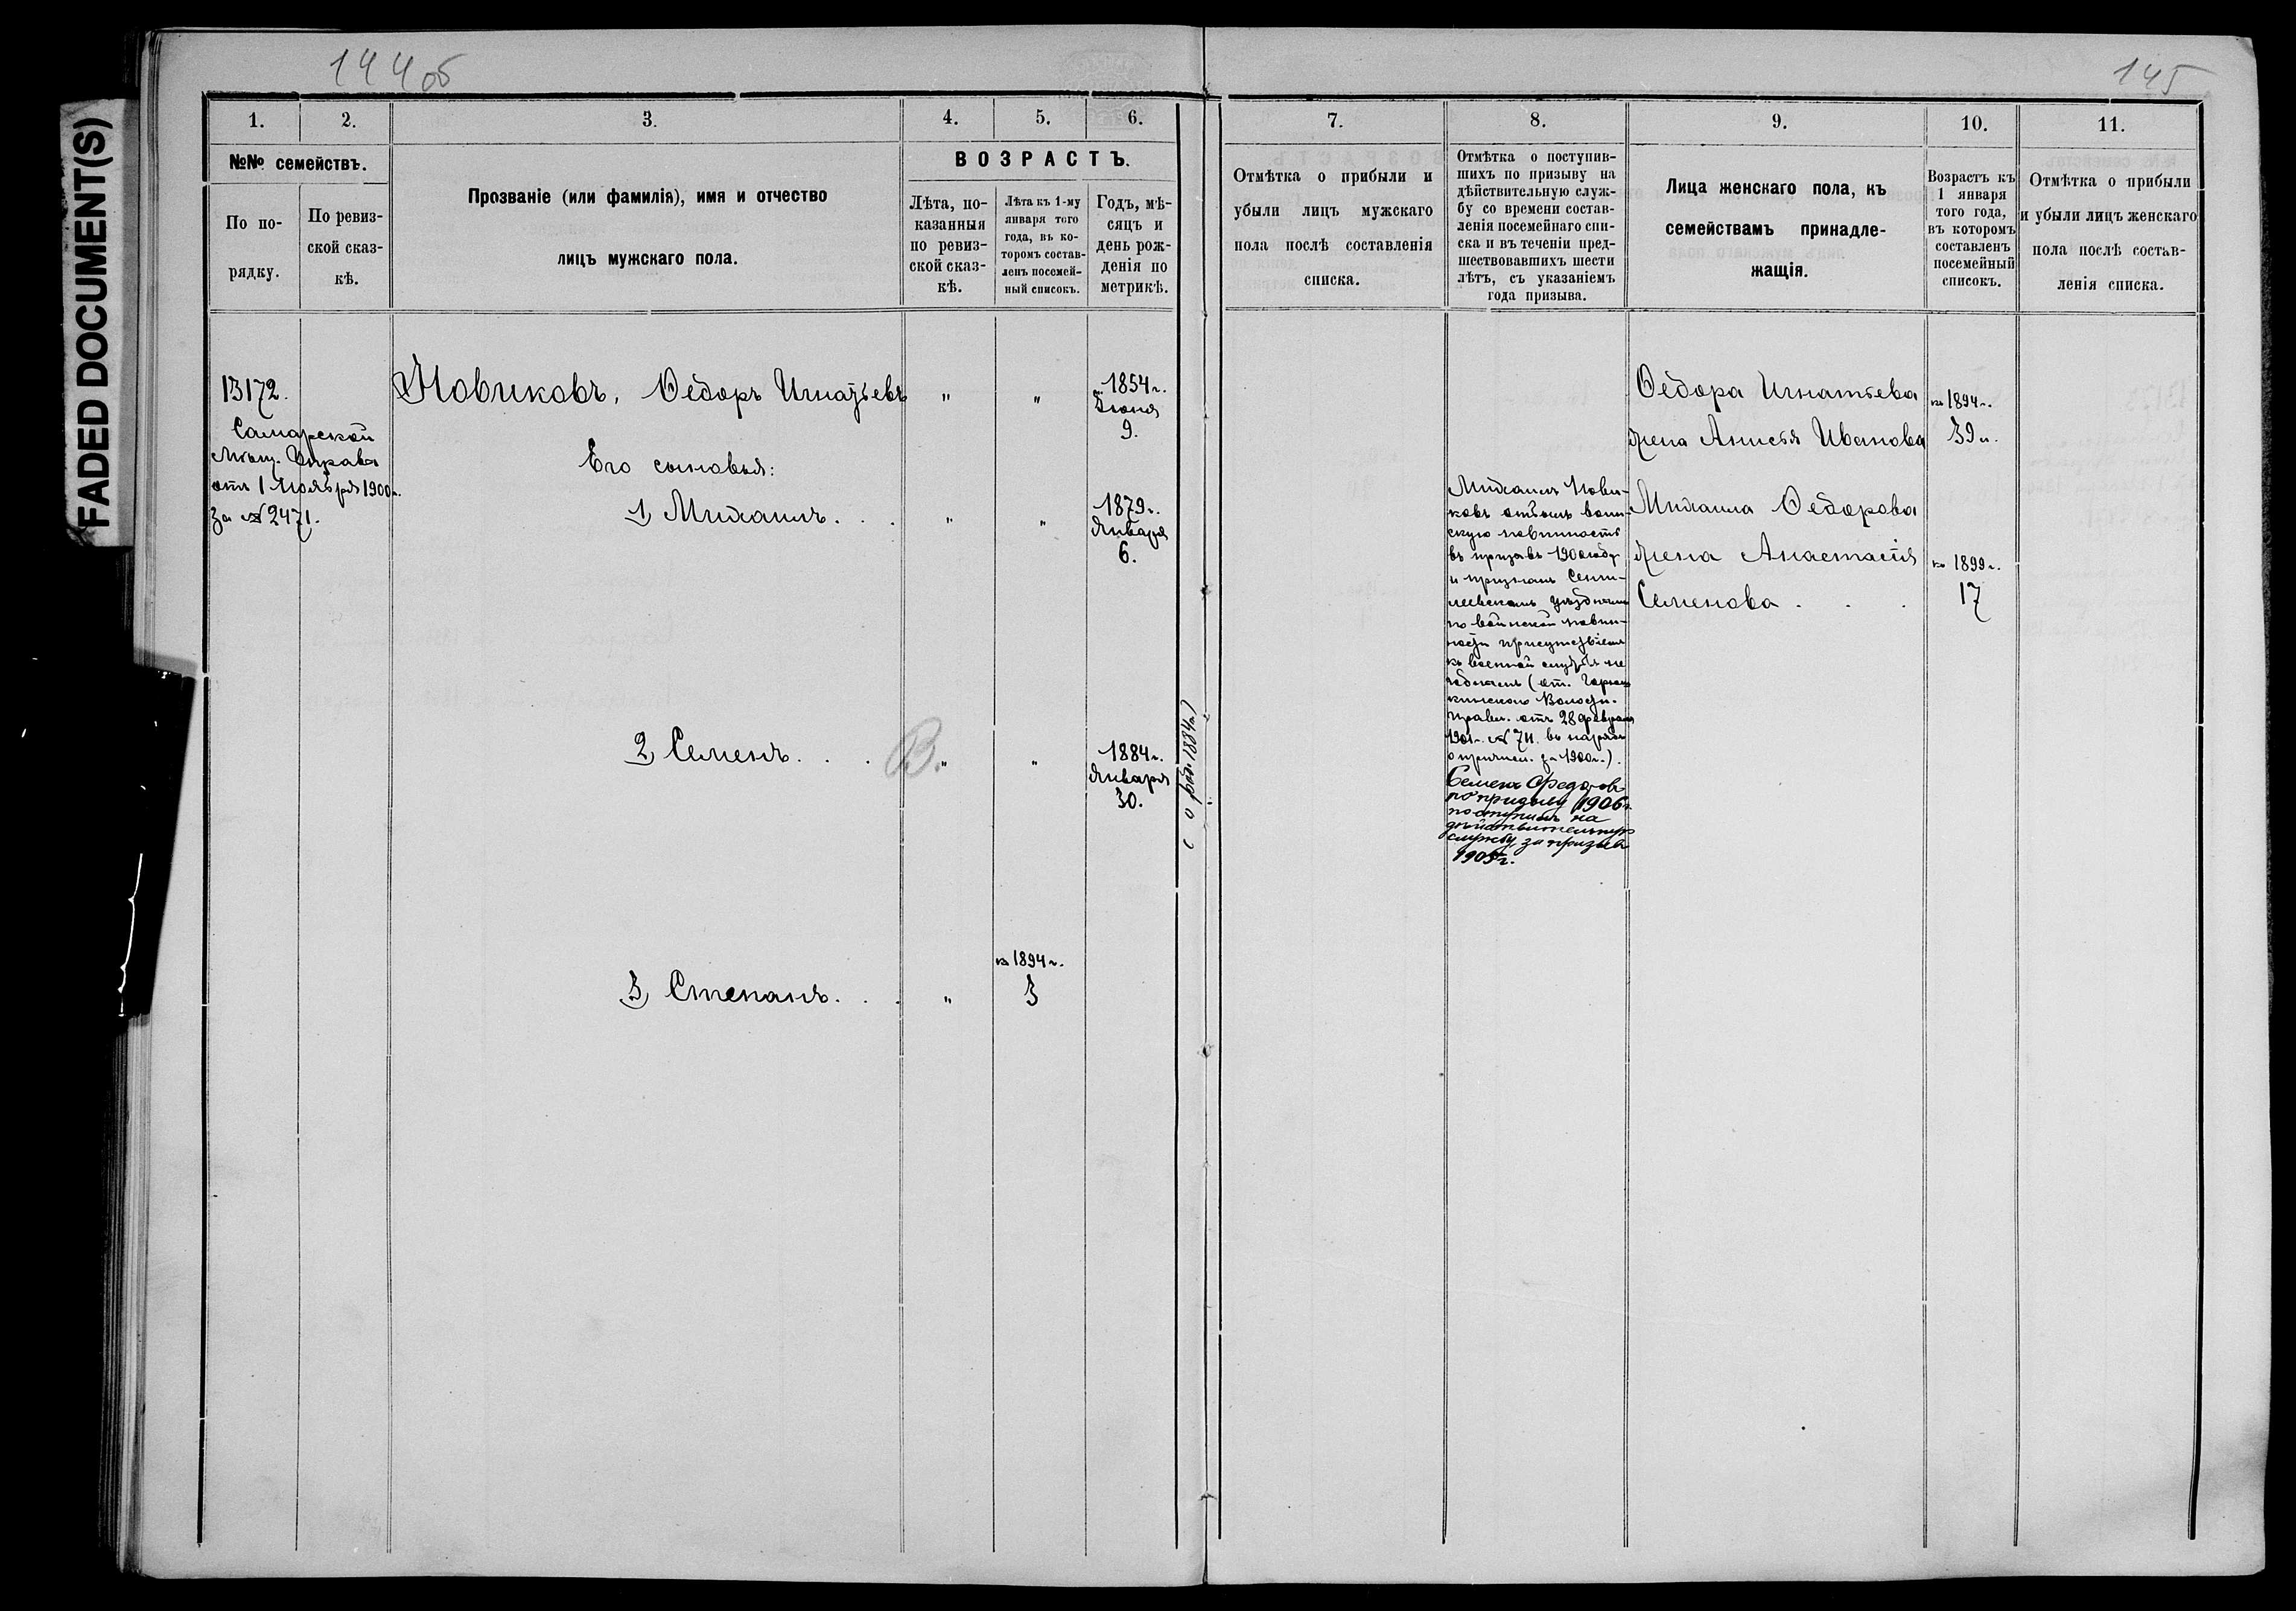 144об
145
FADED DOCUMENT(S)
1.
2.
3.
4.
5.
6.
№№ семействъ.
По по-
рядку.
По ревиз-
ской сказ-
кѣ.
Прозваніе (или фамилія), имя и отчество
лицъ мужскаго пола.
ВОЗРАСТЪ.
Лѣта, по-
казанныя
по ревиз-
ской сказ-
кѣ.
Лѣта къ 1-му
января того
года, въ ко-
торомъ состав-
ленъ посемей-
ный списокъ.
Годъ, мѣ-
сяцъ и
день рож-
денія по
метрикѣ.
7.
8.
9.
10.
11.
Отмѣтка о прибыли и
убыли лицъ мужскаго
пола послѣ составленія
списка.
Отмѣтка о поступив-
шихъ по призыву на
дѣйствительную служ-
бу со времени состав-
ленія посемейнаго спи-
ска и въ теченіи пред-
шествовавшихъ шести
лѣтъ, съ указаніемъ
года призыва.
Лица женскаго пола, къ
семействамъ принадле-
жащія.
Возрастъ къ
1 января
того года,
въ которомъ
составленъ
посемейный
списокъ.
Отмѣтка о прибыли
и убыли лицъ женскаго
пола послѣ состав-
ленія списка.
13172.
Самарской
Мѣщ. Управы
отъ 1 Ноября 1900г.
За № 2471.
Новиковъ, Ѳедоръ Игнатьевъ
"
"
1854 г.
Іюня
9.
Его сыновья:
1) Михаилъ. . .
"
"
1879 г.
Января
6.
2) Семенъ. . .
В.
"
"
1884 г.
Января
30.
о рожд. 1884 г.)
3) Степанъ. . .
"
къ 1894 г.
3
Михаилъ Нови-
ковъ отбылъ воин-
скую повинность
въ призывъ 1900 году
и признанъ Сенги-
леевскимъ уѣзднымъ
по воинской повин-
ности присутствіемъ
къ военной службѣ не
годнымъ (от.
Волостн.
Правл. отъ 28 февраля
1901 г. № 711. въ нарядѣ
о причисл. за 1900 г.).
Семенъ Федоровъ
по призыву 1906 г.
поступилъ на
дѣйствительную
службу, за призывъ
1905 г.
Ѳедора Игнатьева
жена Анисья Иванова
къ 1894 г.
39 л.
Михаила Ѳедорова
жена Анастасія
Семенова . . .
къ 1899 г.
17